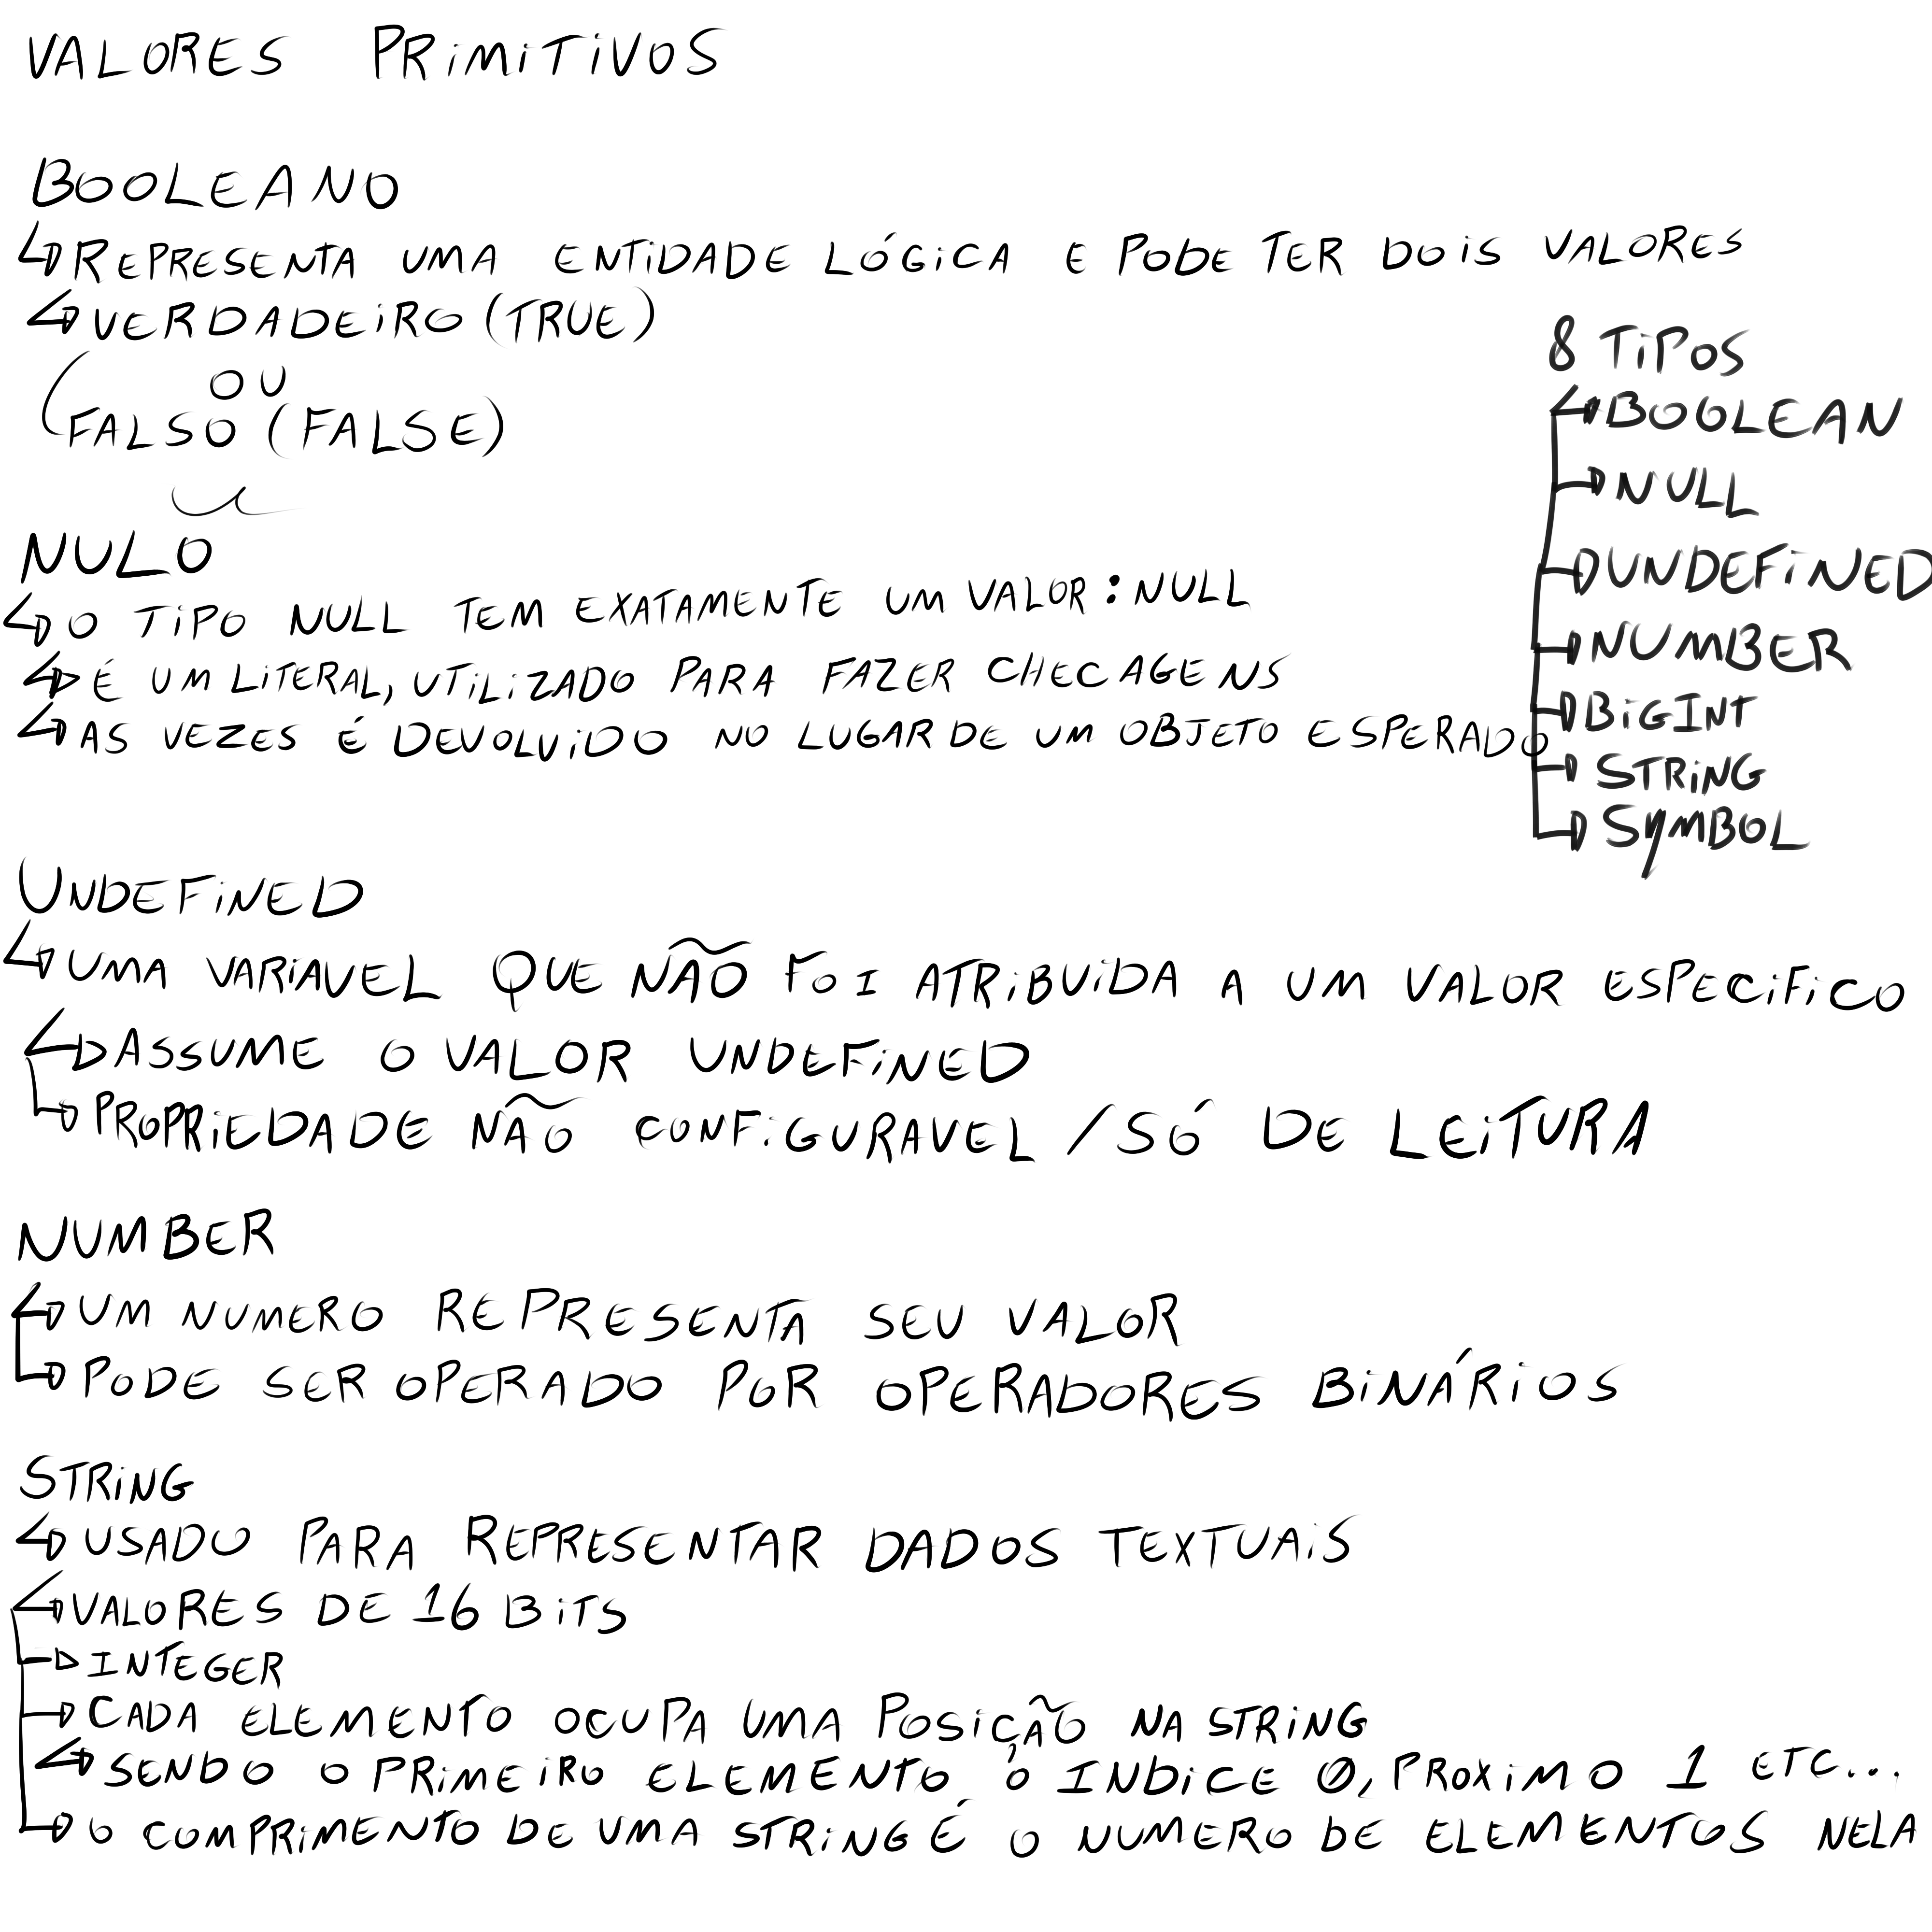 VALORES PRIMITIVOS
BOOLEANO
REPRESENTA UMA ENTIDADE LÓGICA E PODE TER DOIS VALORES
VERDADEIRO (TRUE)
OU
FALSO (FALSE)
NULO
O TIPO NULL TEM EXATAMENTE UM VALOR: NULL
É UM LITERAL, UTILIZADO PARA FAZER CHECAGENS
AS VEZES É DEVOLVIDO NO LUGAR DE UM OBJETO ESPERADO
8 TIPOS
BOOLEAN
NULL
UNDEFINED
NUMBER
BIGINT
STRING
SYMBOL
UNDEFINED
UMA VARIAVEL QUE NÃO FOI ATRIBUIDA A UM VALOR ESPECIFICO
ASSUME O VALOR UNDEFINED
PROPRIEDADE NÃO CONFIGURAVEL / SÓ DE LEITURA
NUMBER
UM NUMERO REPRESENTA SEU VALOR
PODE SER OPERADO POR OPERADORES BINÁRIOS
STRING
USADO PARA REPRESENTAR DADOS TEXTUAIS
VALORES DE 16 BITS
INTEGER
CADA ELEMENTO OCUPA UMA POSIÇÃO NA STRING
SENDO O PRIMEIRO ELEMENTO O INDICE 0, PROXIMO 1 ETC...
O COMPRIMENTO DE UMA STRING É O NUMERO DE ELEMENTOS NELA